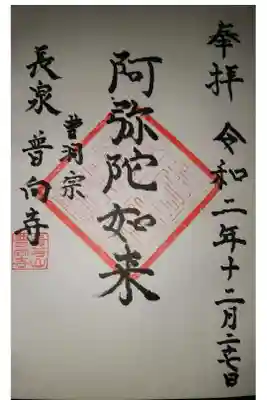 奉拝 令和二年十二月二七日
阿弥陀如来
曹洞宗
長泉 普向寺